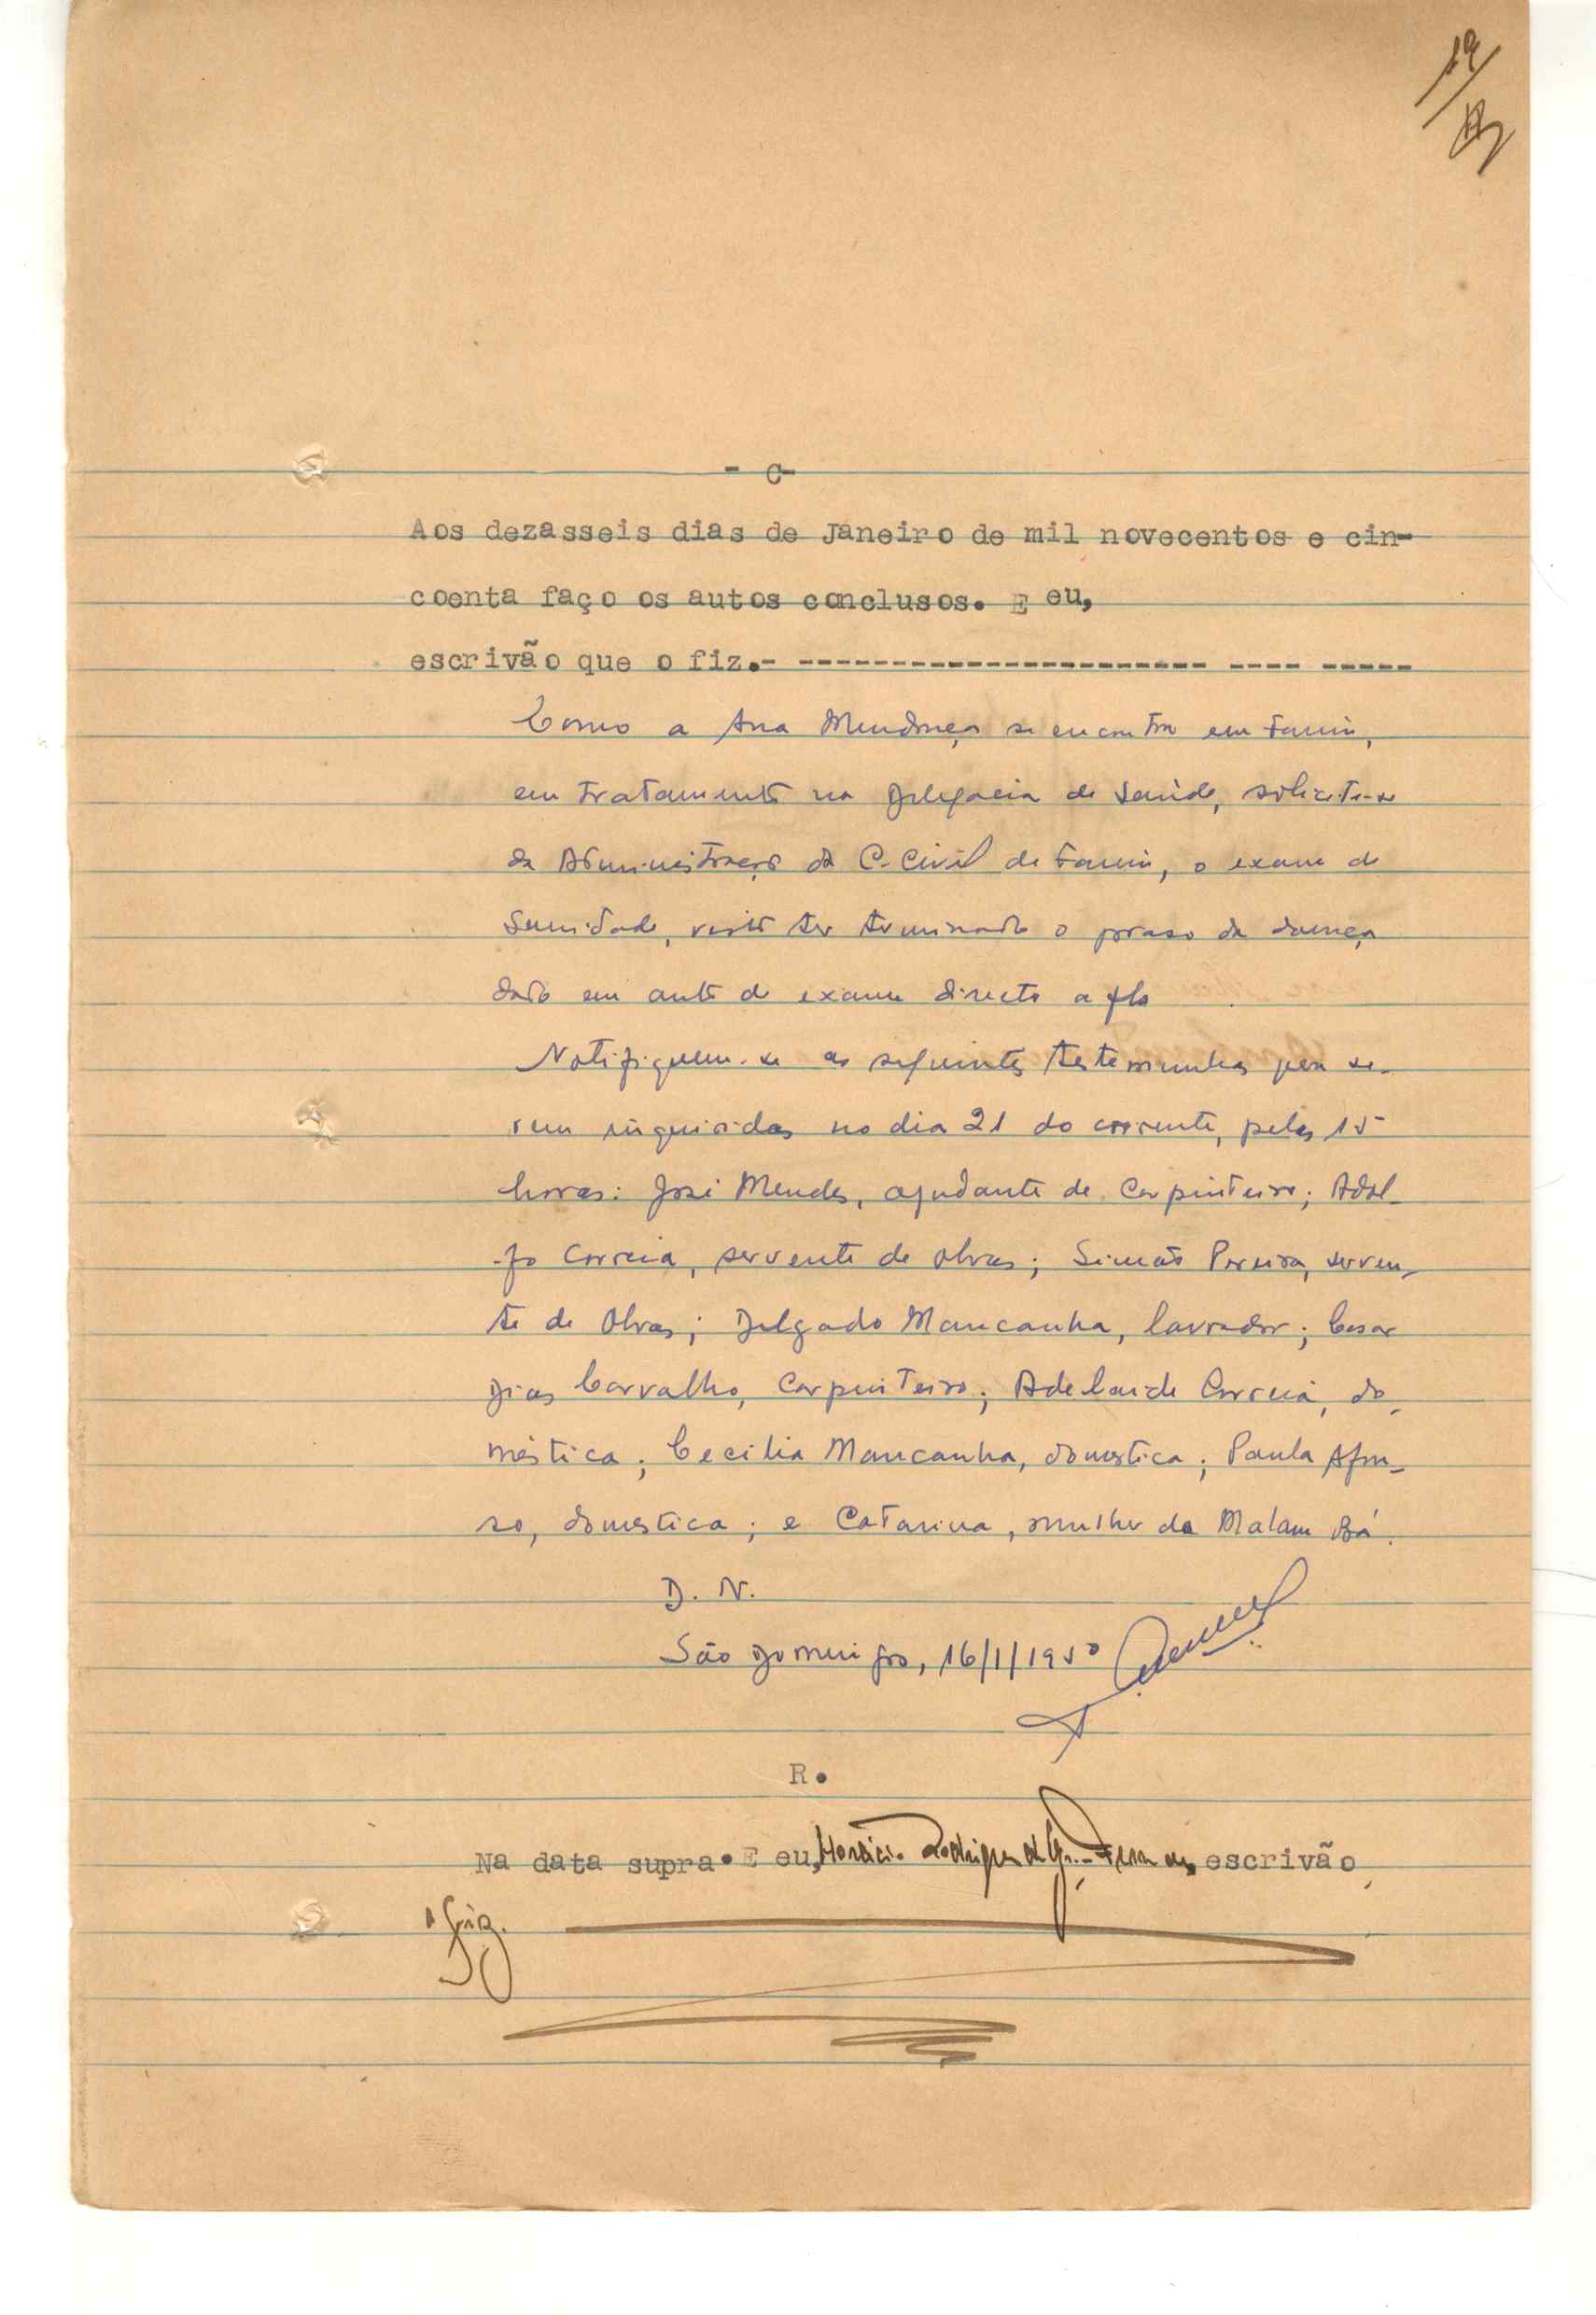 19
- C-
Aos dezasseis dias de Janeiro de mil novecentos e cin-
coenta faço os autos conclusos. E eu,
escrivão que o fiz.- ---------------------- ---- -----
Como a Ana Mendonça se encontra em Farim,
em tratamento na Delegacia de Saúde, solicite-se
da Administração da C. Civil de Farim, o exame de
Sanidade, visto ter terminado o praso da doença
dado em auto de exame directo a fls .
Notifiquem-se as seguintes testemunhas para se-
rem inquiridas no dia 21 do corrente, pelas 15
horas: José Mendes, ajudante de Carpinteiro; Adol-
-fo Correia, servente de obras; Simão Pereira, serven-
te de Obras; Delgado Mancanha, lavrador; Cesar
Dias Carvalho, Carpinteiro; Adelaide Correia, do-
méstica; Cecilia Mancanha, domestica; Paula Afon-
so, domestica; e Catarina, mulher de Malam Bá.
D. N.
São Domingos, 16/1/1950
R.
Na data supra. E eu, Horácio Rodrigues escrivão,
o fiz.